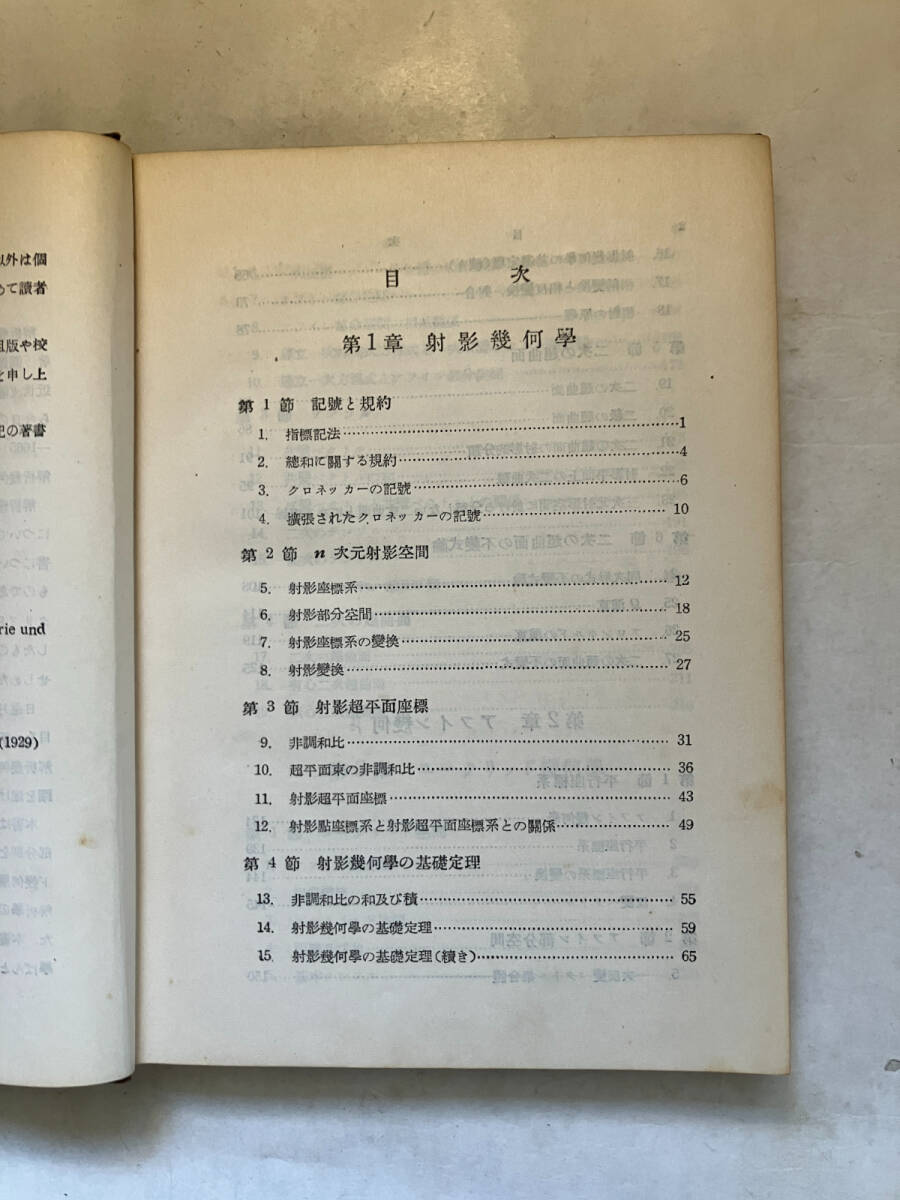 以外は個
めて讀者
組版や校
を申し上
犯の著書
rie und
(1929)
目 次
第1章 射影幾何學
第1節 記號と規約
1. 指標記法 1
2. 總和に關する規約 4
3. クロネッカーの記號 6
4. 擴張されたクロネッカーの記號 10
第2節 n次元射影空間
5. 射影座標系 12
6. 射影部分空間 18
7. 射影座標系の變換 25
8. 射影變換 27
第3節 射影超平面座標
9. 非調和比 31
10. 超平面束の非調和比 36
11. 射影超平面座標 43
12. 射影點座標系と射影超平面座標系との關係 49
第4節 射影幾何學の基礎定理
13. 非調和比の和及び積 55
14. 射影幾何學の基礎定理 59
15. 射影幾何學の基礎定理(續き) 65